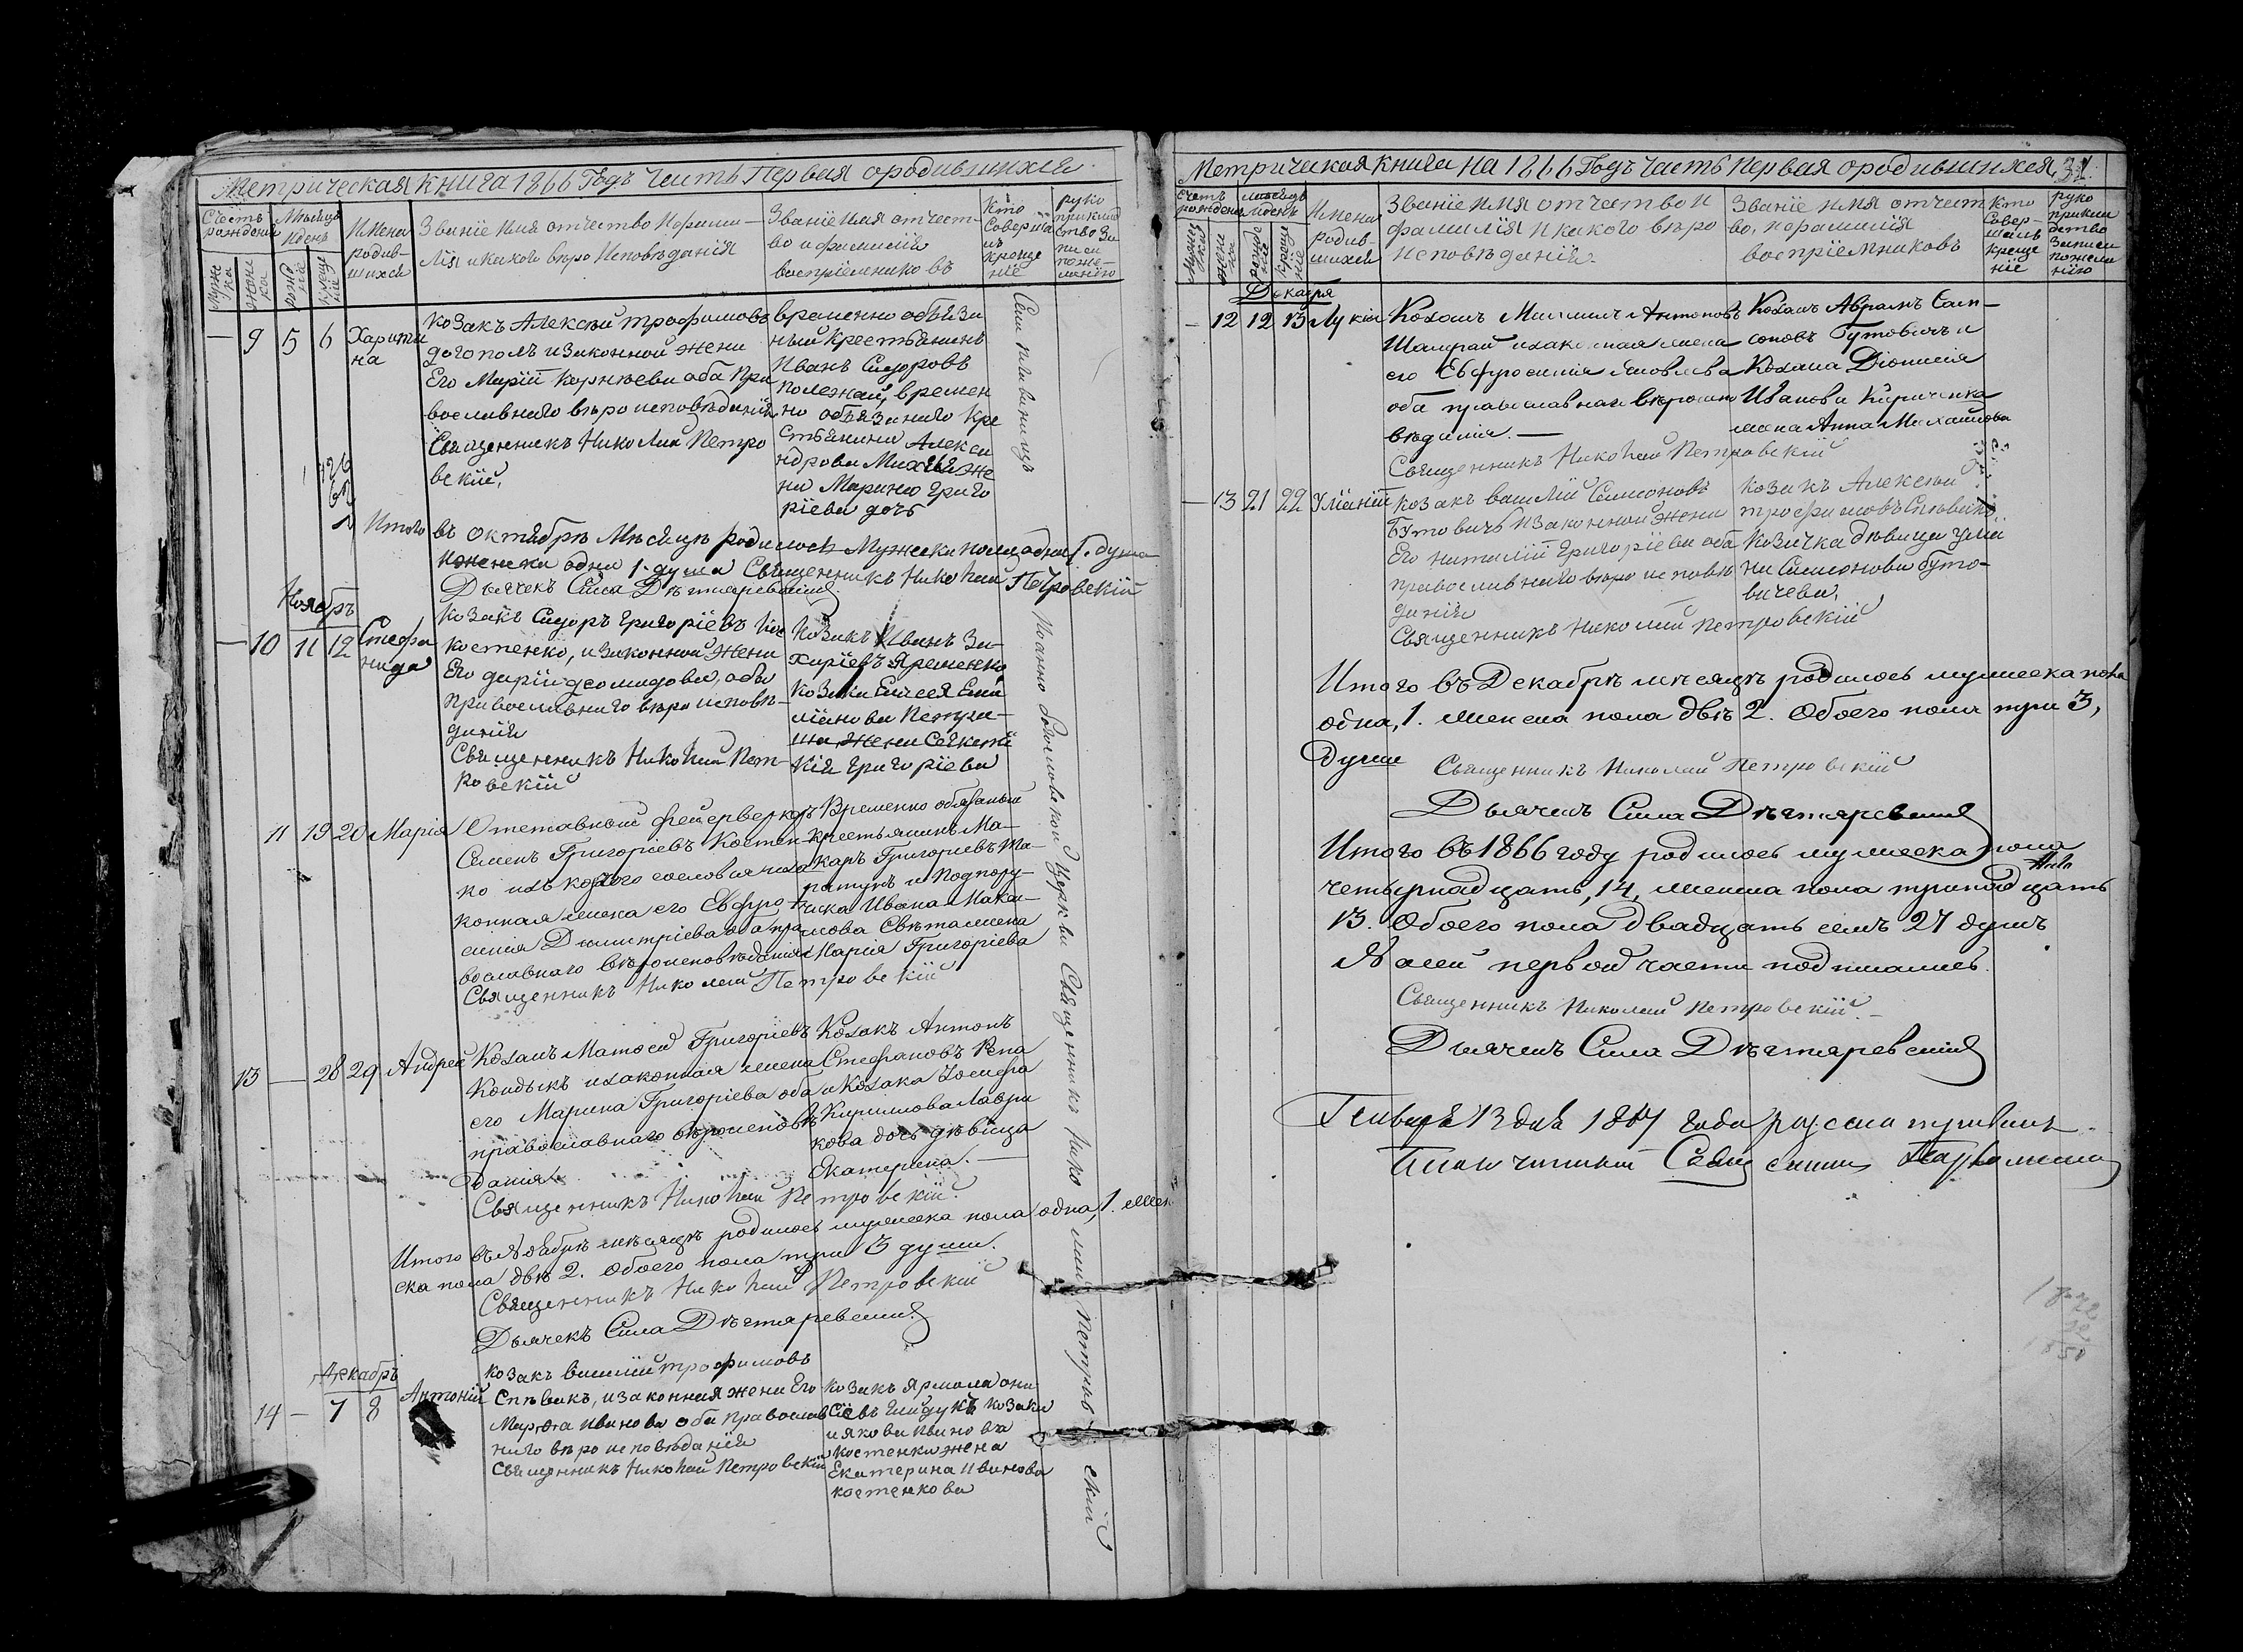 Метрическая книга 1866 Годъ Часть Первая ородившихся
Счетъ рожденій
Мѣсяцъ и день
Имена родив-шихся
Званіе Имя отчество Ифами-
лія икакого вѣро Исповѣданія
Званіе Имя отчест-
во ифамилія
воспріемниковъ
Кто
Соверша
лъ
креще
ніе
руко
приклад
ство За
писи
по же-
ланію
Муже
ска
Женс
ка
рожд
ніе
креще
ніе
— 9 5 6 Харити
на
Козакъ Алексѣй трофимовъ
изаконной жени
Его Маріи Корнѣева оба пра
вославнаго вѣроисповѣданія
Священникъ Николай Петро
вскій.
временно обязан
ный Крестьянинъ
Иванъ Сидоровъ
времен
но обязанаго Кре
стьянина Алекса
ндрова же
на Марина Григо
ріева дочъ
Итого въ октябрѣ Мѣсяцѣ родилось Мужска пола одна 1. душа
иженска одна 1. душа Священникъ Николай Петровскій
Дьячекъ Сила Дѣгтяревскій
Ноябрь
— 10 11 12 Стефа
нида
Козакъ Сидоръ Григоріевъ
Костенко, изаконной Жени
Его Даріи деомидова, оба
православнаго вѣро исповѣ-
данія
Священникъ Николай Пет-
ровскій
Козакъ Иванъ За-
харіевъ Яременко,
Козака Елисея Еми
ліанова Петра-
ша Жена
Григоріева
11 19 20 Марія
Отставный фейерверкеръ
Семенъ Григоріевъ Костен-
ко изъ козачого сословія изако
нная жена его Евфро-
синія Димитріева оба пра
вославнаго вѣроисповѣданія
Священникъ Николай Петровскій
Временно обязаный
крестьянинъ Ма-
каръ Григорьевъ Та-
ратунъ и Подпору-
чика Ивана Мака-
Марія Григоріева
13 — 28 29 Андрей
Козакъ Матвѣй Григоріевъ
Кондыкъ изаконная жена
его Марина Григоріева оба
православнаго вѣроисповѣ
данія.
Священникъ Николай Петровскій.
Козакъ Антонъ
Стефановъ Рѣпа
и Козака Іосифа
Кириллова Лаври
кова дочь дѣвица
Екатерина.—
Итого въ Ноябрѣ мѣсяцѣ родилось мужеска пола одна, 1. жен
ска пола двѣ 2. Обоего пола три 3 души.
Священникъ Николай Петровскій
Дьячекъ Сила Дѣгтяревскій.
Декабрь
14 — 7 8 Антоній
Козакъ василій трофимовъ
Спѣвакъ, изаконная жена Его
Марфа Иванова оба православ
наго вѣро исповѣданія
Священникъ Николай Петровскій
козакъ Ярмола они
сіевъ Гайдукъ козака
иякова Иванова
костенка жена
Екатерина Иванова
костенкова
Іоанно Богословской Церкви Священникъ Николай Петровскій
Метрическая книга на 1866 Годъ Часть первая ородившихся 31.
Счетъ рожденій
мѣсяцъ и день
Имена
родив-
шихся
Званіе имя отчество и
фамилія икакого вѣро
исповѣданія.
Званіе имя отчест
во, ифамилія
воспріемниковъ
Кто
Совер-
шалъ
креще
ніе
руко
прикла
дство
записи
пожела
нію
Декабря
— 12 12 13 Лукія
Козакъ Максимъ Антоновъ
Шамрай изаконная жена
его Евфросинія Яковлева
оба православнаго вѣроиспо
вѣданія.—
Священникъ Николай Петровскій
Козакъ Аврамъ Сам-
соновъ Бутовичъ и
Козака Діонисія
Иванова Кириченка
жена Анна Михайлова
— 13 21 22 Уліанія
козакъ василій Симоновъ
Бутовичъ изаконной жени
Его наталіи Григоріева оба
православнаго вѣро исповѣ
данія
Священникъ Николай Петровскій
козакъ Алексѣй
трофимовъ Спѣвакъ
козачка дѣвица Уліа
на Симонова буто-
вичева.
Итого въ Декабрѣ мѣсяцѣ родилось мужеска пола
одна, 1. женска пола двѣ 2. Обоего пола три 3,
души
Священникъ Николай Петровскій
Дьячекъ Сила Дѣгтяревскій
Итого въ 1866 году родилось мужеска пола
четырнадцать, 14, женска пола тринадцать
13. Обоего пола двадцать семъ 27 душъ
Священникъ Николай Петровскій.—
Дьячекъ Сила Дѣгтяревскій
Генваря 13 дня 1867 года